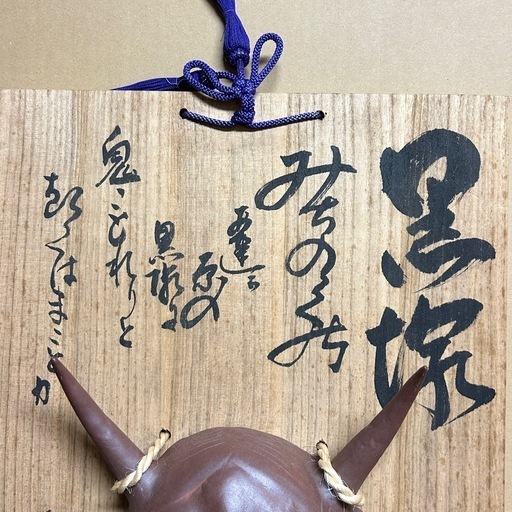 黒塚
みちのくの
安達ヶ
原の
黒塚に
鬼こもれりと
きくはまことか